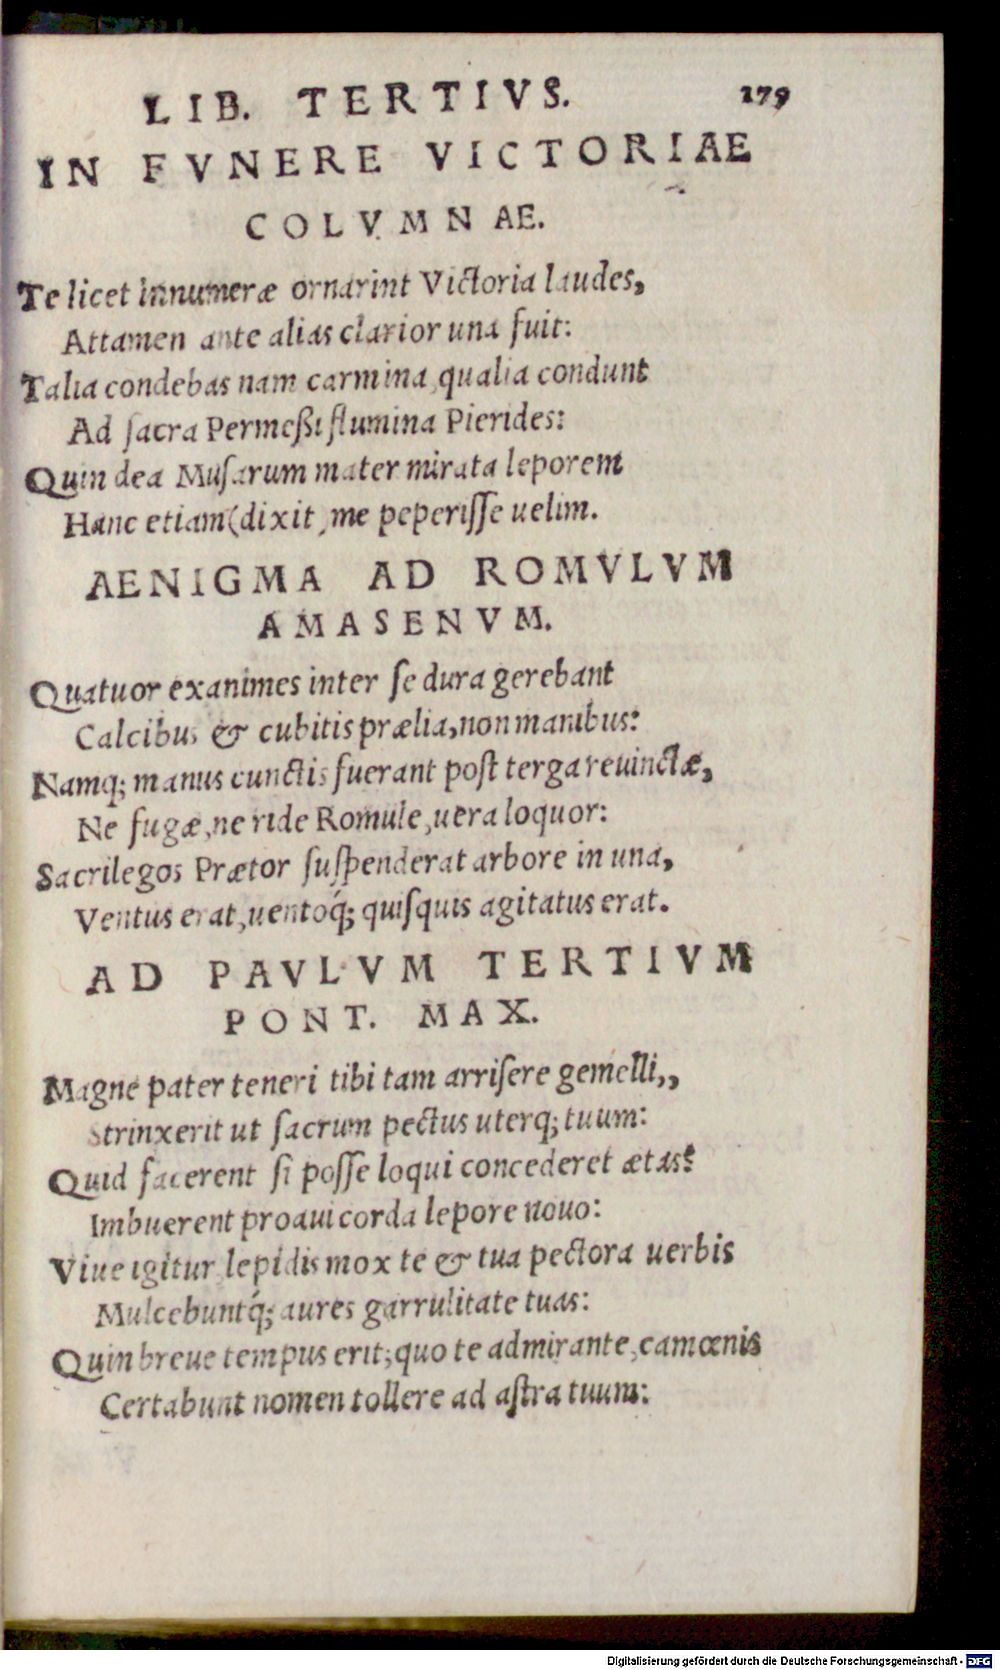 LIB. TERTIVS. 179
IN FVNERE VICTORIAE
COLVMNAE.
Te licet innumeræ ornarint Victoria laudes,
Attamen ante alias clarior una fuit:
Talia condebas nam carmina, qualia condunt
Ad sacra Permeßi flumina Pierides:
Quin dea Musarum mater mirata leporem
Hanc etiam (dixit, me peperisse uelim.
AENIGMA AD ROMVLVM
AMASENVM.
Quatuor exanimes inter se dura gerebant
Calcibus & cubitis prælia, non manibus:
Namq; manus cunctis fuerant post terga reuinctæ,
Ne fugæ, ne ride Romule, uera loquor:
Sacrilegos Prætor suspenderat arbore in una,
Ventus erat, uentoq́; quisquis agitatus erat.
AD PAVLVM TERTIVM
PONT. MAX.
Magne pater teneri tibi tam arrisere gemelli,,
Strinxerit ut sacrum pectus uterq; tuum:
Quid facerent si posse loqui concederet ætas?
Imbuerent proaui corda lepore nouo:
Viue igitur lepidis mox te & tua pectora uerbis
Mulcebuntq́; aures garrulitate tuas:
Quin breue tempus erit; quo te admirante, camœnis
Certabunt nomen tollere ad astra tuum:
Digitalisierung gefördert durch die Deutsche Forschungsgemeinschaft - DFG